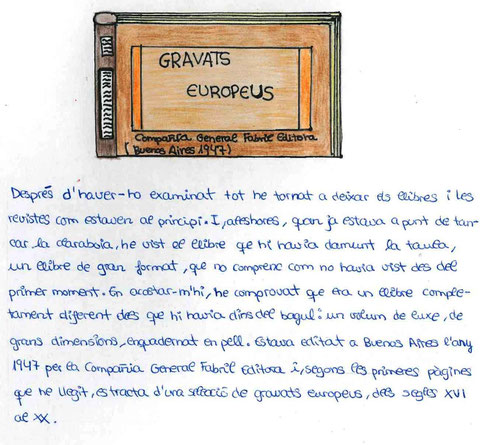 GRAVATS
EUROPEUS
Compañia General Fabril Editora
(Buenos Aires 1947)
Després d'haver-ho examinat tot he tornat a deixar els llibres i les
revistes com estaven al principi. I, aleshores, quan ja estava a punt de tan-
car la claraboia, he vist el llibre que hi havia damunt la taula,
un llibre de gran format, que no comprenc com no havia vist des del
primer moment. En acostar-m'hi, he comprovat que era un llibre comple-
tament diferent dels que hi havia dins del bagul: un volum de luxe, de
grans dimensions, enquadernat en pell. Estava editat a Buenos Aires l'any
1947 per la Compañia General Fabril Editora i, segons les primeres pàgines
que he llegit, es tracta d'una selecció de gravats europeus, dels segles XVI
al XX.